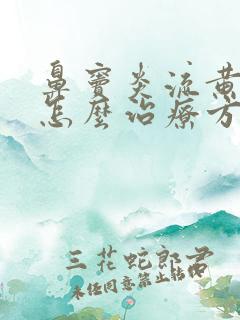 鼻窦炎流黄
怎麽治疗方
三花蛇郎君
未经同意禁止转载